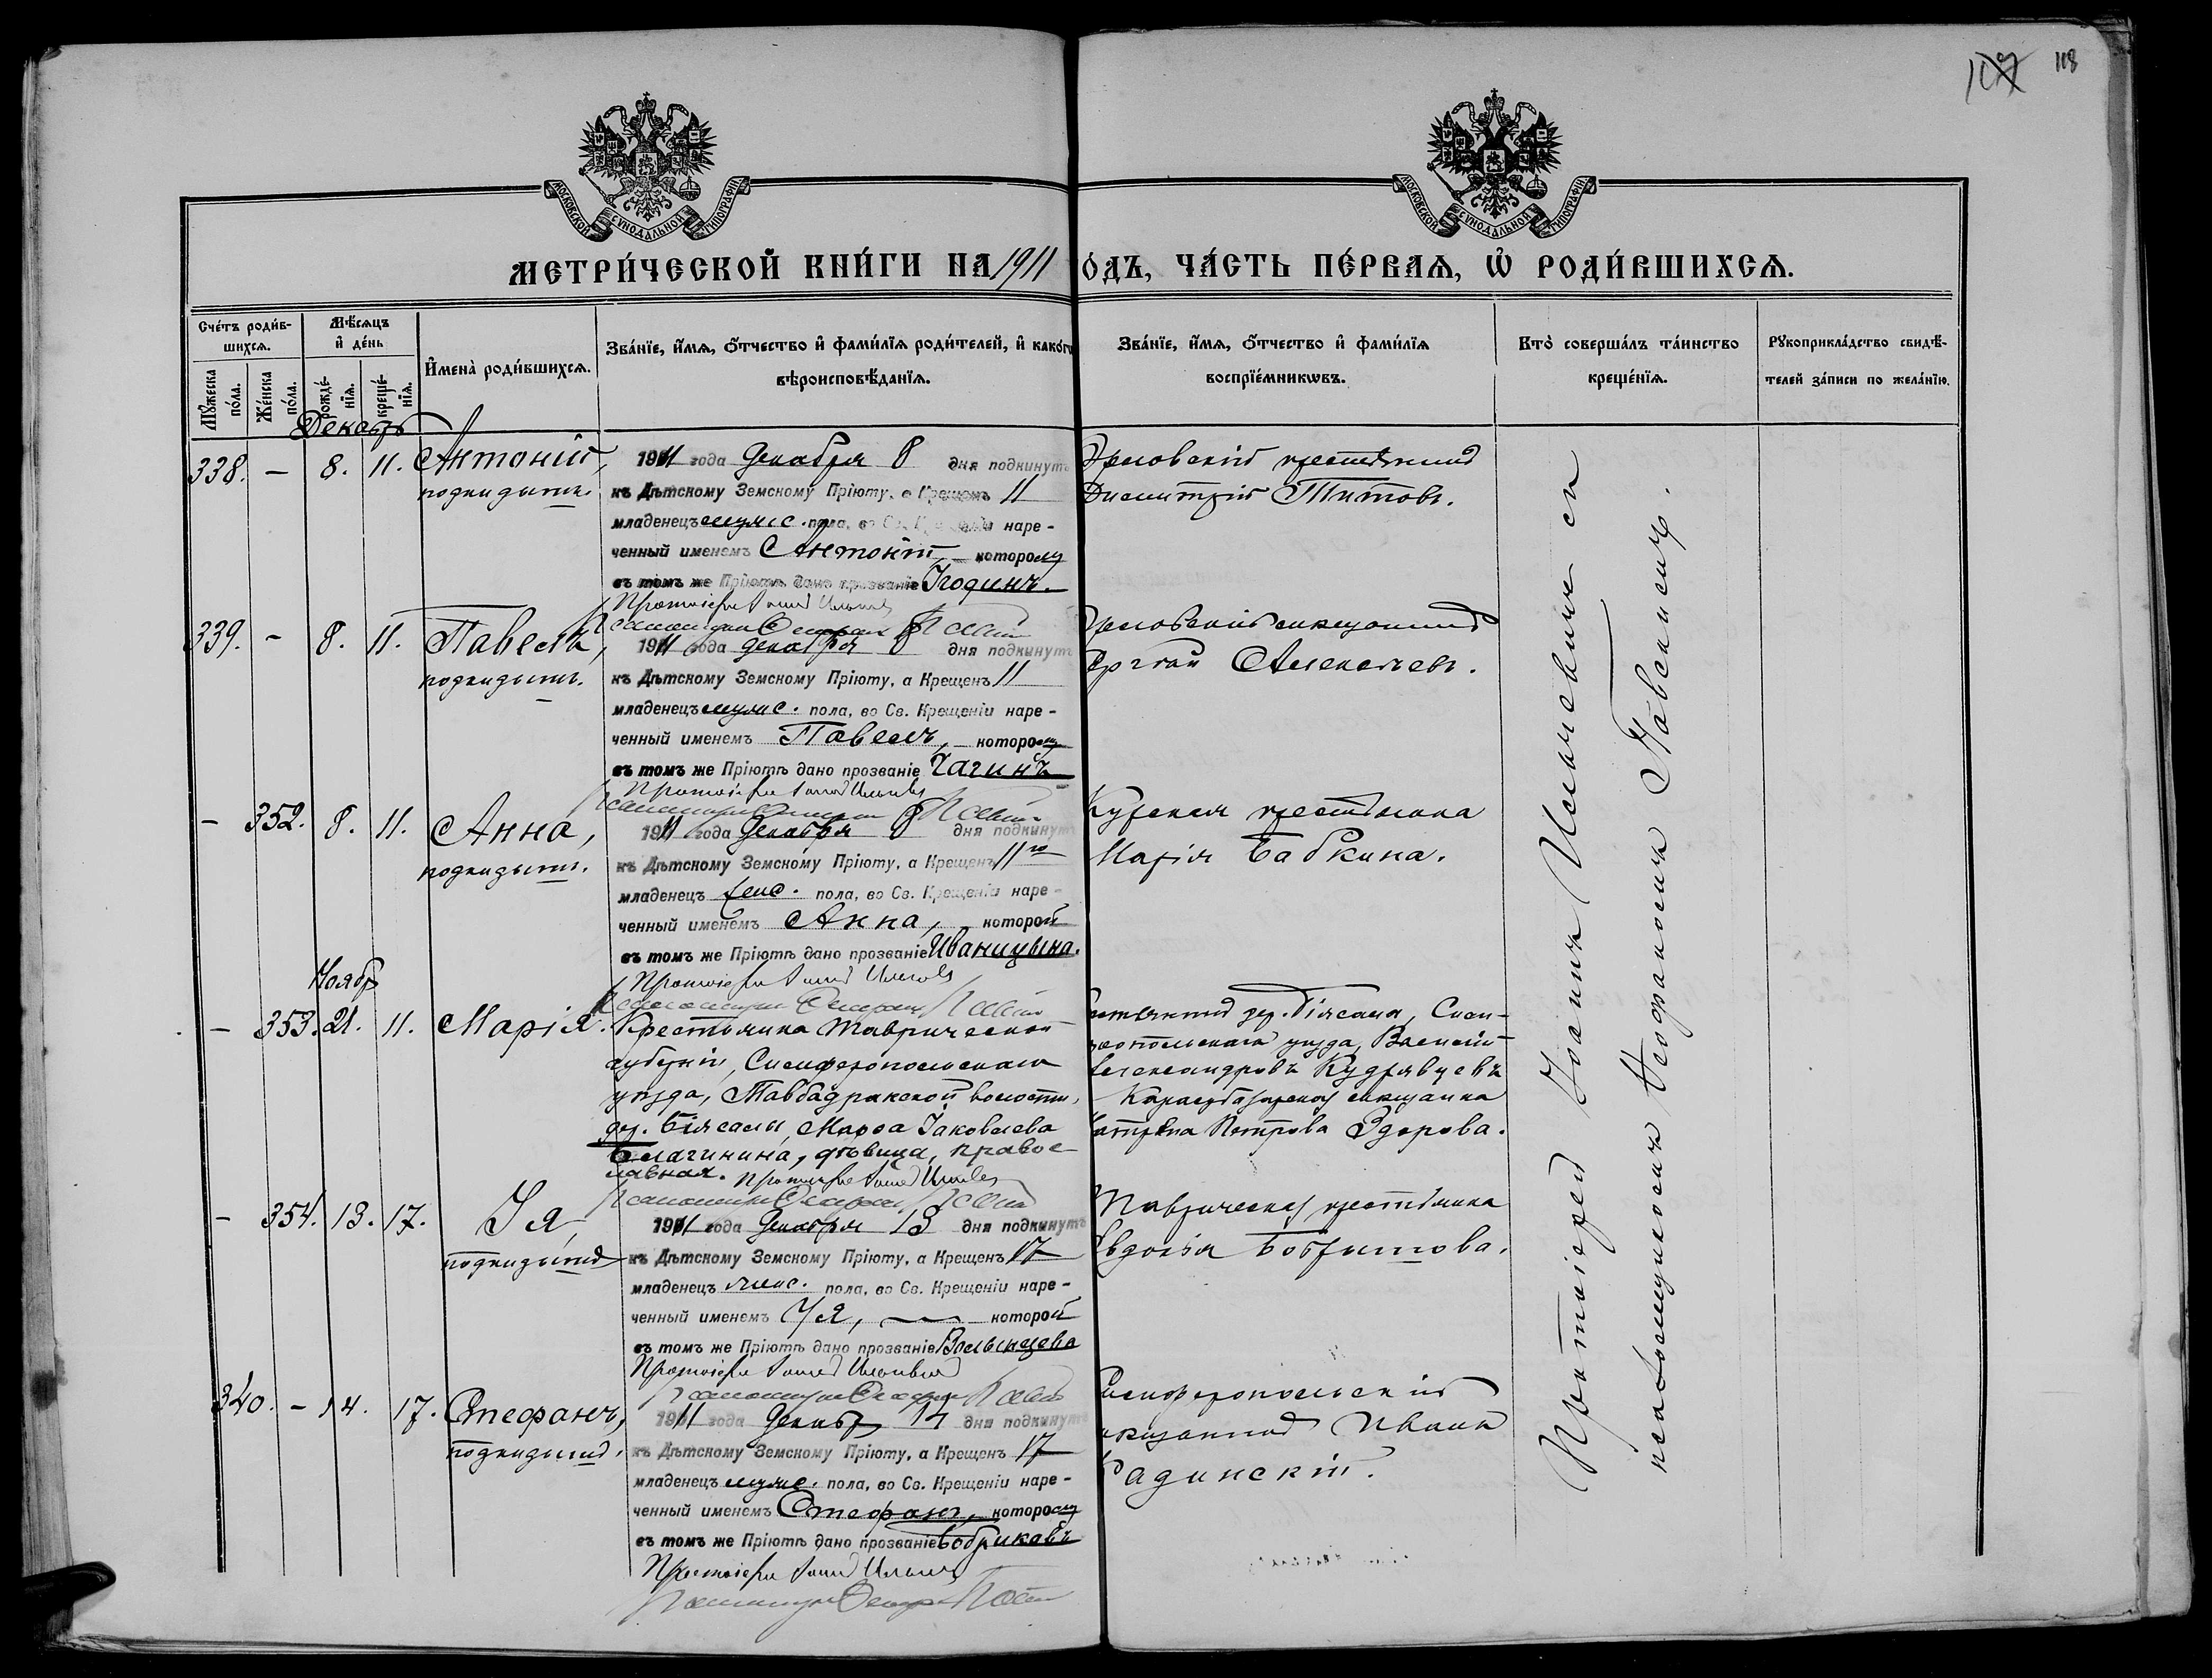 118
МОСКОВСКОЙ СѴНОДАЛЬНОЙ ТИПОГРАФІИ
МОСКОВСКОЙ СѴНОДАЛЬНОЙ ТИПОГРАФІИ
МЕТРИ́ЧЕСКОЙ КНИ́ГИ НА 1911
О́ДЪ, ЧА́СТЬ ПЕ́РВАѦ, Ѡ҆ РОДИ́ВШИХСѦ.
Сче́тъ роди́в-
шихсѧ.
Мꙋ́жеска по́ла.
Же́нска по́ла.
Мѣ́сѧцъ
и҆ де́нь
рожде́-
нїѧ.
креще́-
нїѧ.
И҆мена̀ роди́вшихсѧ.
Зва́нїе, и҆́мѧ, ѻ҆́тчество и҆ фами́лїѧ роди́телей, и҆ како́гѡ
вѣроисповѣ́данїѧ.
Зва́нїе, и҆́мѧ, ѻ҆́тчество и҆ фами́лїѧ
воспрїе́мникѡвъ.
Кто̀ соверша́лъ та́инство
креще́нїѧ.
Рꙋкоприкла́дство свидѣ́-
телей за́писи по жела́нїю.
Декабрь
338. — 8. 11. Антоній,
подкидышъ.
1911 года Декабря 8 дня подкинутъ
къ Дѣтскому Земскому Пріюту, а Крещенъ 11
младенецъ муж. пола, во Св. Крещеніи наре-
ченный именемъ Антоній, которому
въ томъ же Пріютѣ дано прозваніе Ягодинъ.
крестьянинъ
Димитрій Титовъ.
339. — 8. 11. Павелъ,
подкидышъ.
1911 года декабря 8 дня подкинутъ
къ Дѣтскому Земскому Пріюту, а Крещенъ 11
младенецъ муж. пола, во Св. Крещеніи наре-
ченный именемъ Павелъ, которому
въ томъ же Пріютѣ дано прозваніе Чагинъ
Алексѣевъ.
— 352. 8. 11. Анна,
подкидышъ.
1911 года Декабря 8 дня подкинутъ
къ Дѣтскому Земскому Пріюту, а Крещенъ 11го
младенецъ жен. пола, во Св. Крещеніи наре-
ченный именемъ Анна, которой
въ томъ же Пріютѣ дано прозваніе Иваницына.
Курская крестьянка
Марія Бабкина.
Ноябр
— 353. 21. 11. Марія.
Крестьянка Таврической
губерніи, Симферопольскаго
уѣзда, Тавбадракской волости,
дер. Біясалы, Марѳа Іаковлева
Благинина, дѣвица, право-
славная.
дер. Біясала, Сим-
уѣзда, Василій
Кудрявцевъ
Карасубазарская мѣщанка
Петрова Здорова.
— 354. 13. 17. Ія,
подкидышъ
1911 года Декабря 13 дня подкинутъ
къ Дѣтскому Земскому Пріюту, а Крещенъ 17
младенецъ жен. пола, во Св. Крещеніи наре-
ченный именемъ Ія, которой
въ томъ же Пріютѣ дано прозваніе Волынцева
Таврическая крестьянка
Евдокія
340. — 14. 17. Стефанъ,
подкидышъ.
1911 года Декабр 14 дня подкинутъ
къ Дѣтскому Земскому Пріюту, а Крещенъ 17
младенецъ муж. пола, во Св. Крещеніи наре-
ченный именемъ Стефанъ, которому
въ томъ же Пріютѣ дано прозваніе Бобриковъ
Симферопольскій
мѣщанинъ Иванъ
Протоіерей Іоаннъ
псаломщикомъ